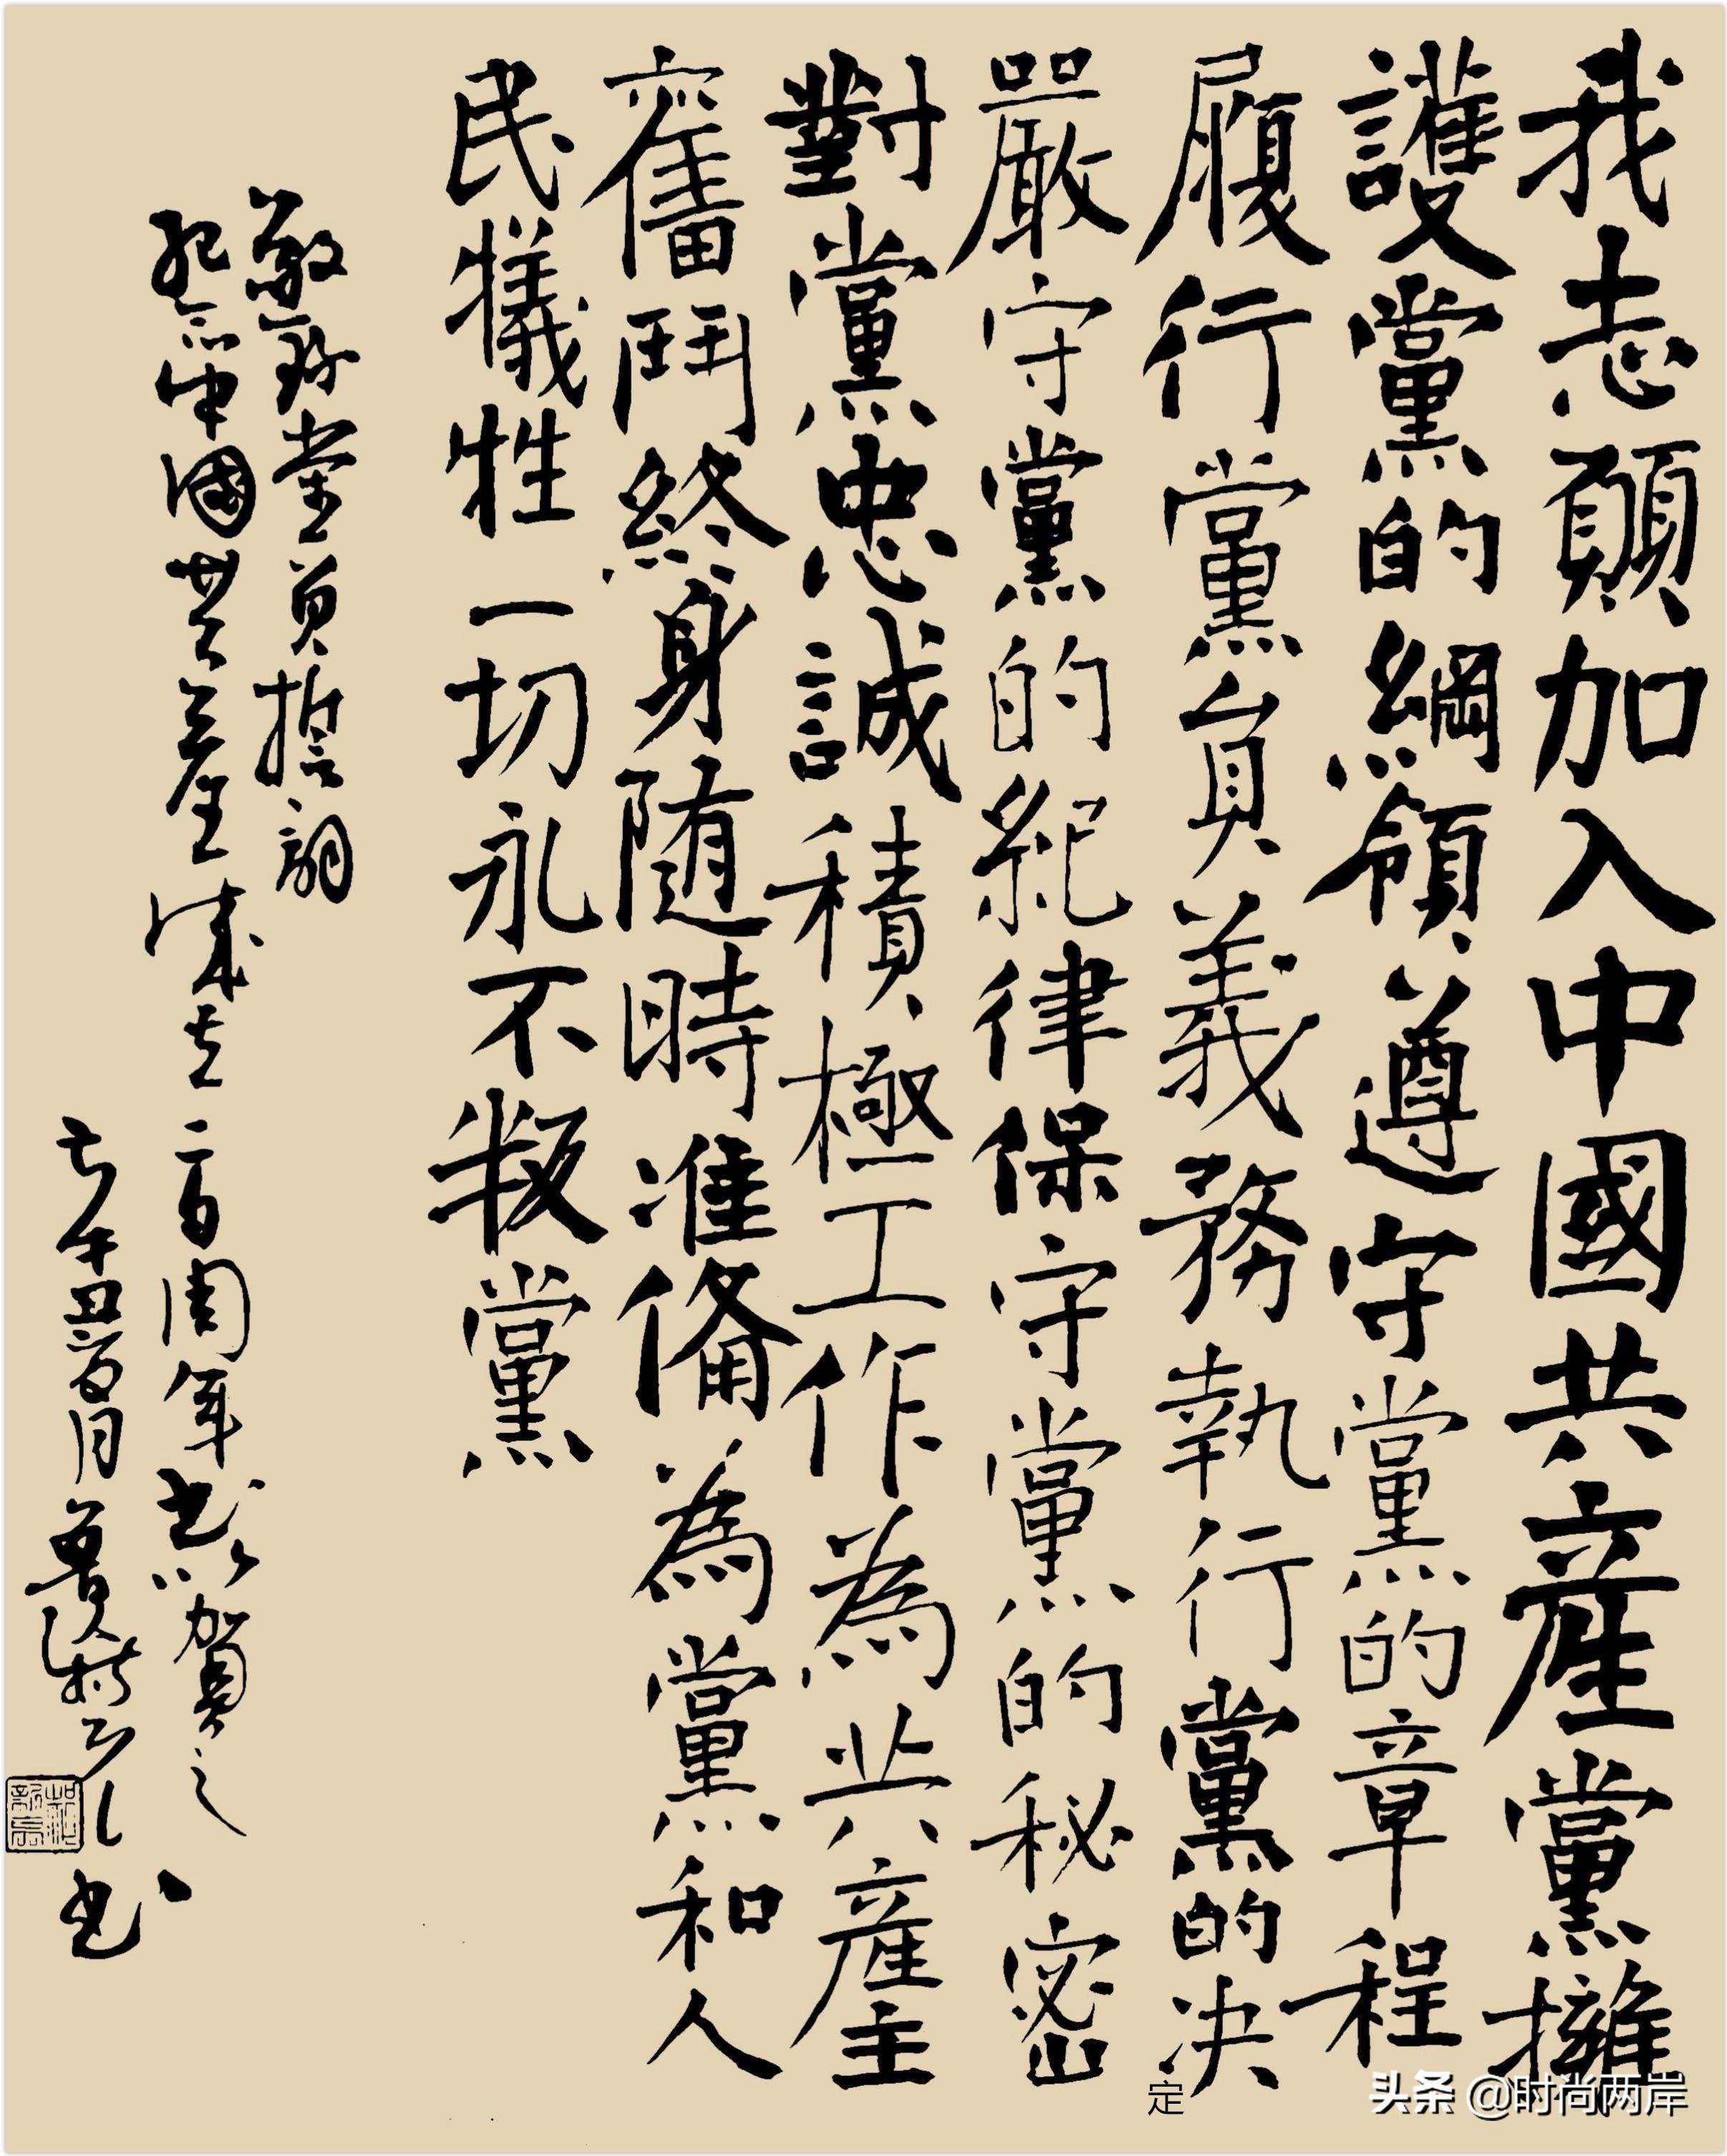 我志願加入中國共産黨擁
護黨的綱領遵守黨的章程
履行黨員義務執行黨的决定
嚴守黨的紀律保守黨的秘密
對黨忠誠積極工作為共産主
奮鬥終身随時准備為黨和人
民犧牲一切永不叛黨
敬録黨員誓詞
紀念中國共産成立一百周年書以賀之
辛丑月書
头条 @时尚两岸